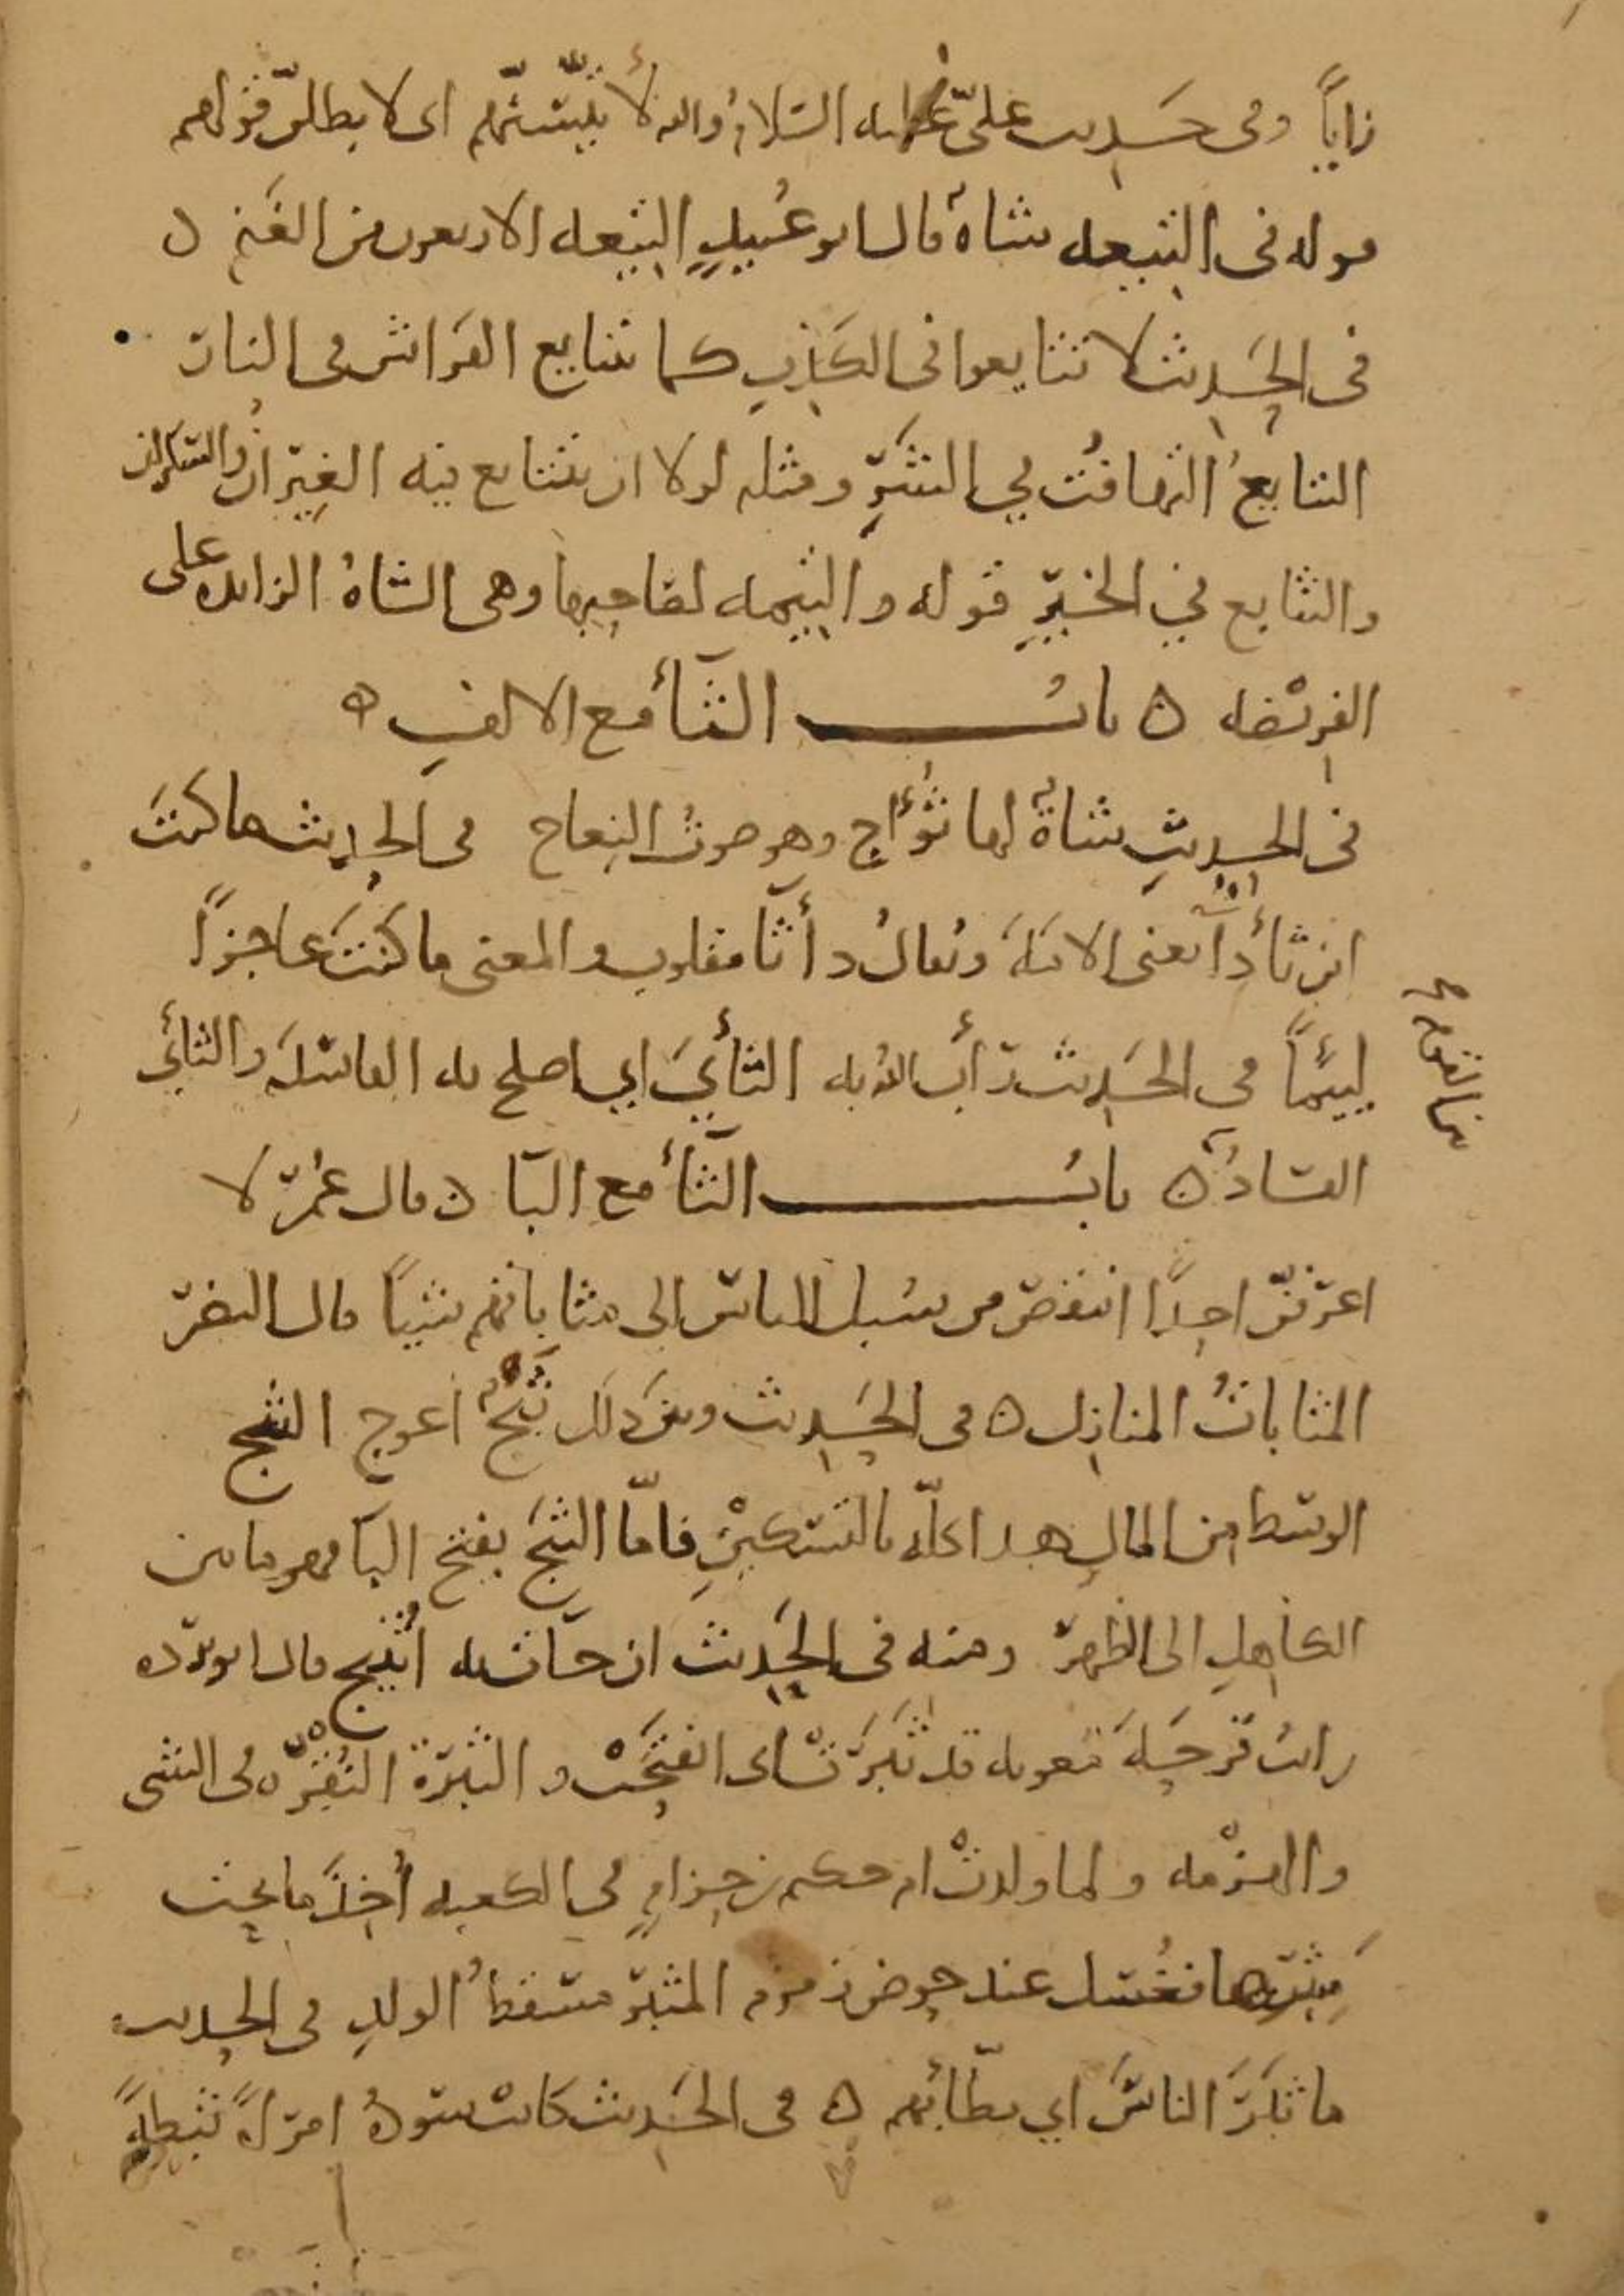 زايًا وفى حَديث علىّ عليه السّلامُ والله لأُتَيِّسَنَّهُم اى لا بطلنّ قولهم
قوله فى التيعه شاةٌ قال ابو عُبيدٍ التيعه الاربعون من الغَنمِ ه
فى الحَديث لا تتايعوا فى الكَذبِ كما يتتايع الفَراش فى النار
التتايعُ التهافُت في الشَرِّ ومثله لولا ان يتتايع فيه الغيرانُ والسكران
والتتابع في الخَيرِ قوله والتيمه لصاحِبِها وهى الشاةُ الزايده على
الفريْضه ه بابُ الثّأ مع الالفِ ه
فى الحديثِ شاةٌ لها ثُؤاج وهو صوتُ النعاج فى الحديث ما كنتَ
ابن ثأدآ يعنى الامَةَ ويُقالُ دأثا مقلوب والمعنى ما كنتَ عاجزًا
لييمًا في الحَديث رَأَبَ اللهُ به الثأيَ اي اصلح به الفاسدَ والثأي
الفسادُ ه بابُ الثّأ مع البَا ه قال عُمرُ لا
اعرفنّ احدًا انتقصَ من سُبل الناس الى مثاباتهم شيئًا قال النضرُ
المثاباتُ المنازل ه فى الحَديث ومن ذلك ثَبَجٌ اعوج الثبج
الوسَط من المال هدا كلّه بالتسْكينِ فامّا الثبَج بفتح البَا فهو ما بين
الكاهلِ الى الظهر ومنه فى الحَديث ان جآت به اثيبج قال ابو بُردَه
رايتُ قرحَةَ معويه قد ثَبَرَتْ اى انفتَحَتْ والثبرَة النُقرَه فى الشى
والهزْمه ولما ولدتْ ام حكيم بن حِزامٍ في الكعبه أُخِذَ ما تحت
مَثبَرها فغُسل عند حوض زمزم المثبرَ مسقطُ الولدِ فى الحديث
ما ثبَرَ الناسَ اي بطّأبهم ه فى الحَديث كانت سَودةُ امرَاةً ثبِطةً